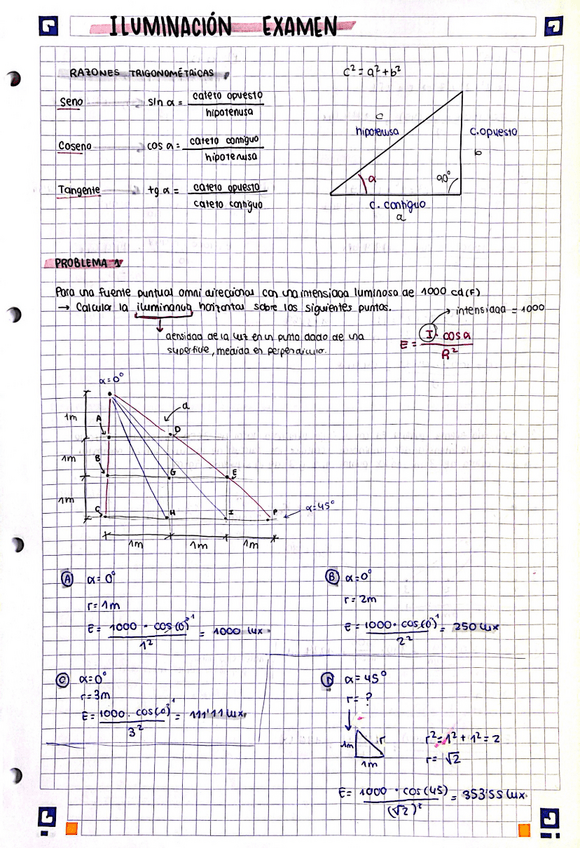 ILUMINACIÓN EXAMEN
RAZONES TRIGONOMÉTRICAS
c² = a² + b²
Seno → sin α = cateto opuesto / hipotenusa
Coseno → cos α = cateto contiguo / hipotenusa
Tangente → tg α = cateto opuesto / cateto contiguo
c
hipotenusa
c. opuesto
b
α
90°
c. contiguo
a
PROBLEMA 1
Para una fuente puntual omnidireccional con una intensidad luminosa de 1000 cd (F)
→ Calcular la iluminancia horizontal sobre los siguientes puntos.
→ intensidad = 1000
densidad de la luz en un punto dado de una
superficie, medida en perpendiculo.
E = I · cos α / R²
α=0°
1m
A
d
D
1m
B
G
E
1m
C
H
I
F
α=45°
1m
1m
1m
A α = 0°
r = 1m
E = 1000 · cos(0)¹ / 1² = 1000 lux.
B α = 0°
r = 2m
E = 1000 · cos(0)¹ / 2² = 250 lux
C α = 0°
r = 3m
E = 1000 · cos(0)¹ / 3² = 111'11 lux.
α = 45°
r = ?
1m
r
1m
r² = 1² + 1² = 2
r = √2
E = 1000 · cos(45) / (√2)² = 353'55 lux.